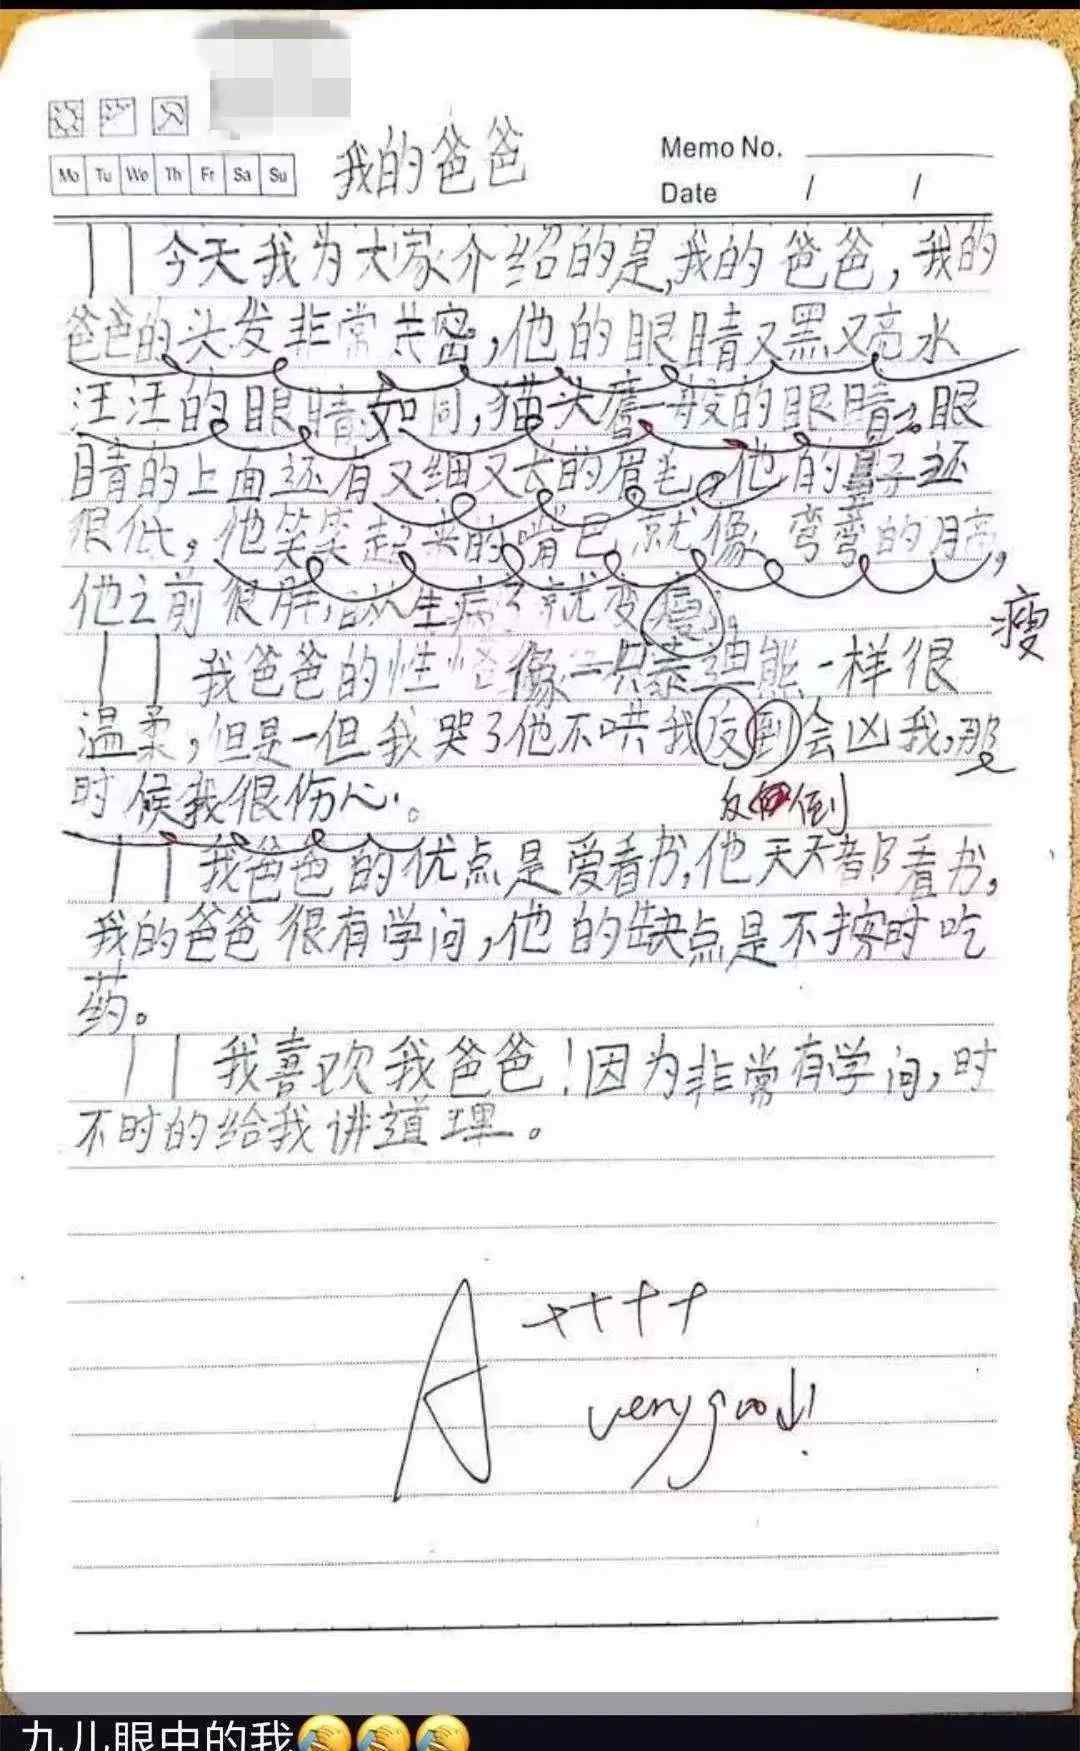 Mo Tu We Th Fr Sa Su
我的爸爸
Memo No.
Date / /
今天我为大家介绍的是,我的爸爸,我的
爸爸的头发非常共密,他的眼睛又黑又亮水
汪汪的眼睛如同,猫头鹰一般的眼睛。眼
睛的上面还有又细又长的眉毛。他的鼻子还
很低,他笑笑起来的嘴巴就像弯弯的月亮,
他之前很胖,自从生病了就变
瘦
我爸爸的性格像一只泰迪熊一样很
温柔,但是一但我哭了他不哄我反到会凶我,那
反倒
时候我很伤心。
我爸爸的优点是爱看书,他天天都看书,
我的爸爸很有学问,他的缺点是不按时吃
药。
我喜欢我爸爸!因为非常有学问,时
不时的给我讲道理。
A++++
very good!
九儿眼中的我